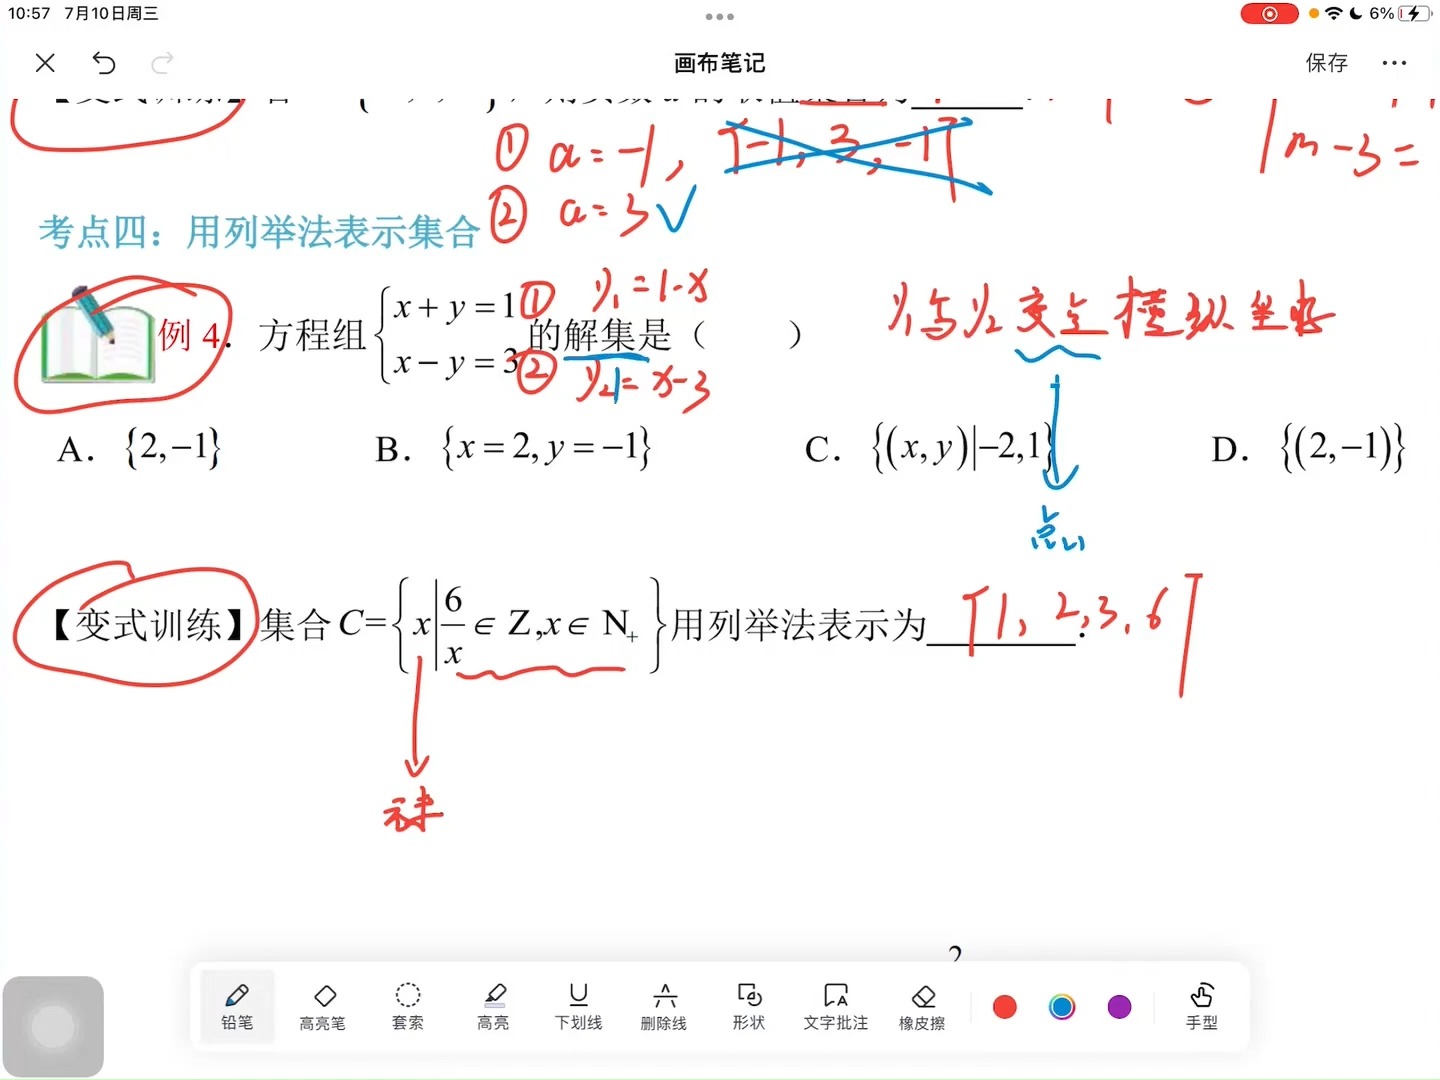 10:57 7月10日周三
6%
画布笔记
保存
① a=-1, {-1, 3, -1}
|m-3=
② a=3✓
考点四：用列举法表示集合
例 4. 方程组{x+y=1① x-y=3②的解集是（ ）
y₁=1-x
y₂=x-3
y₁与y₂交点横纵坐标
A. {2,−1} B. {x=2,y=−1} C. {(x,y)|−2,1} D. {(2,−1)}
点
【变式训练】集合C={x|6/x∈Z,x∈N₊}用列举法表示为______.
{1, 2,3,6}
元素
2
铅笔 高亮笔 套索 高亮 下划线 删除线 形状 文字批注 橡皮擦 手型